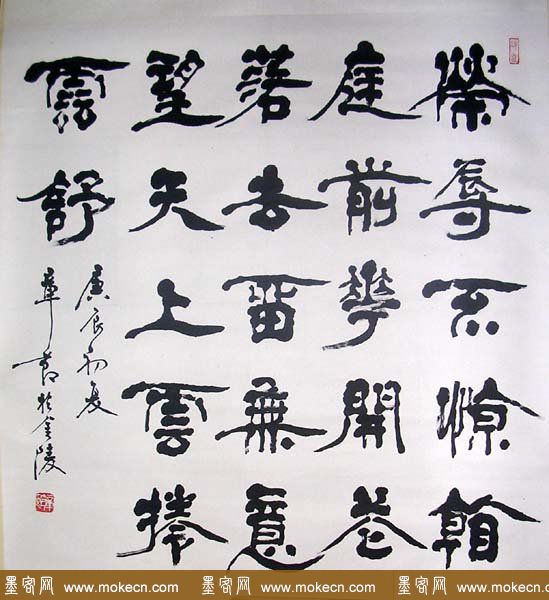 榮辱不惊看
庭前花開花
落去留無意
望天上雲捲
雲舒
庚辰初夏
章 於金陵
墨客网 www.mokecn.com 墨客网 www.mokecn.com 墨客网 www.mokecn.com